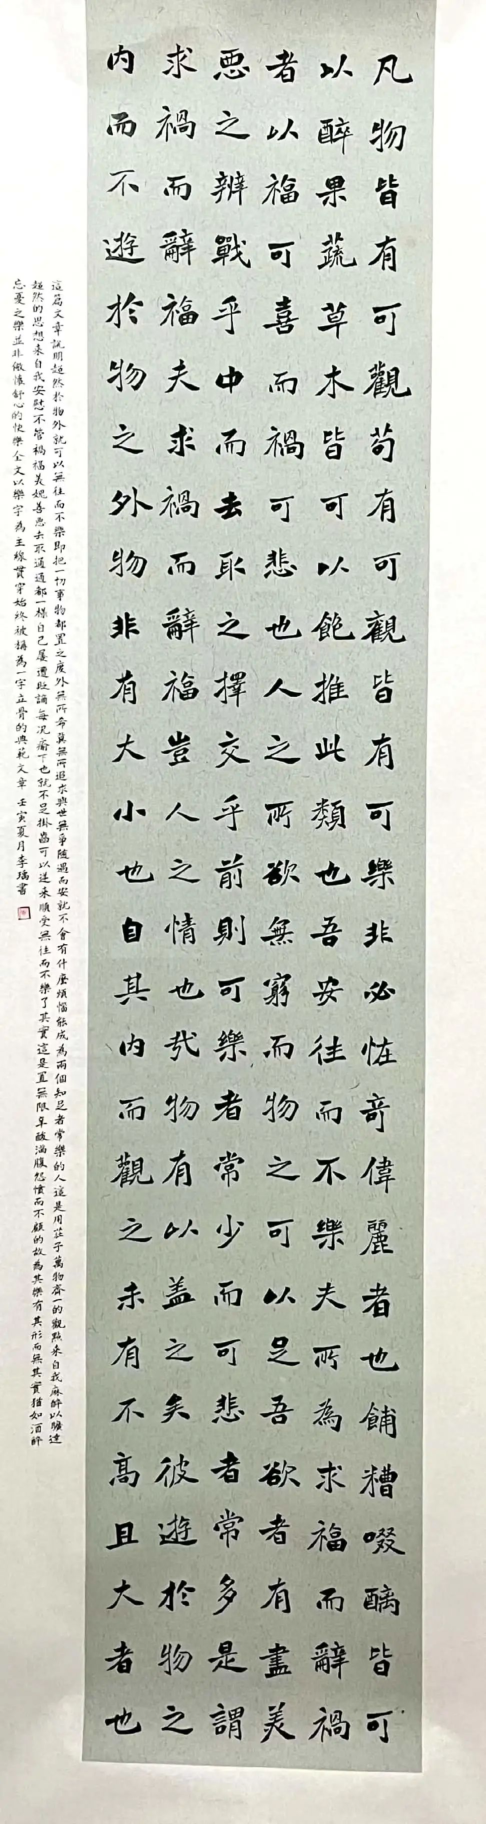 凡物皆有可觀苟有可觀皆有可樂非必恠奇偉麗者也餔糟啜醨皆可
以醉果蔬草木皆可以飽推此類也吾安往而不樂夫所為求福而辭禍
者以福可喜而禍可悲也人之所欲無窮而物之可以足吾欲者有盡美
惡之辨戰乎中而去取之擇交乎前則可樂者常少而可悲者常多是謂
求禍而辭福夫求禍而辭福豈人之情也哉物有以盖之矣彼遊於物之
內而不遊於物之外物非有大小也自其內而觀之未有不高且大者也
這篇文章說明超然於物外就可以無往而不樂即把一切事物都置之度外無所希冀無所追求與世無爭隨遇而安就不會有什麼煩惱能成為兩個知足者常樂的人這是用莊子萬物齊一的觀點來自我麻醉以曠達
超然的思想來自我安慰不管禍福美醜善惡去取通通都一樣自己屢遭貶謫每況愈下也就不足掛齒可以逆來順受無往而不樂了其實這是置無限辛酸滿腹怨憤而不顧的故為其樂有其形而無其實猶如酒醉
忘憂之樂並非儆懷舒心的快樂全文以樂字為主線貫穿始終被稱為一字立骨的典範文章 壬寅夏月李瑞書